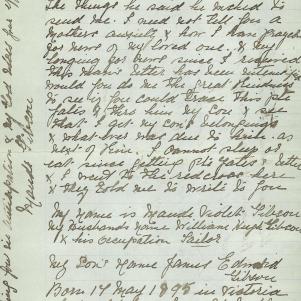 the things he said he wished to
send me. I need not tell you a
Mothers anxiety & how I have prayed
for news of my loved one. & my
longing for news since I received
this Man's letter has been intense
would you do me the great kindness
to see if you could trace this
& there him my son & see
that I get my son's belongings
& what ever was due to him as
next of kin. I cannot sleep or
eat since getting this letter
& I went to the red cross here
& they told me to write to you
My name is Maude Violet Gibson
My Husbands name William Hugh Gibson
& his occupation Sailor
My Son's Name James Edward
Gibson
Born 17 May 1895 in Victoria
you in anticipation & my God bless for